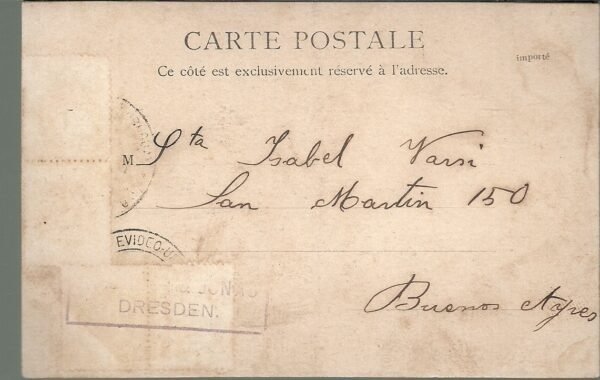 CARTE POSTALE
importé
Ce côté est exclusivement réservé à l'adresse.
M Sta Isabel Varsi
San Martin 150
EVIDEO-U
DRESDEN.
Buenos Ayres